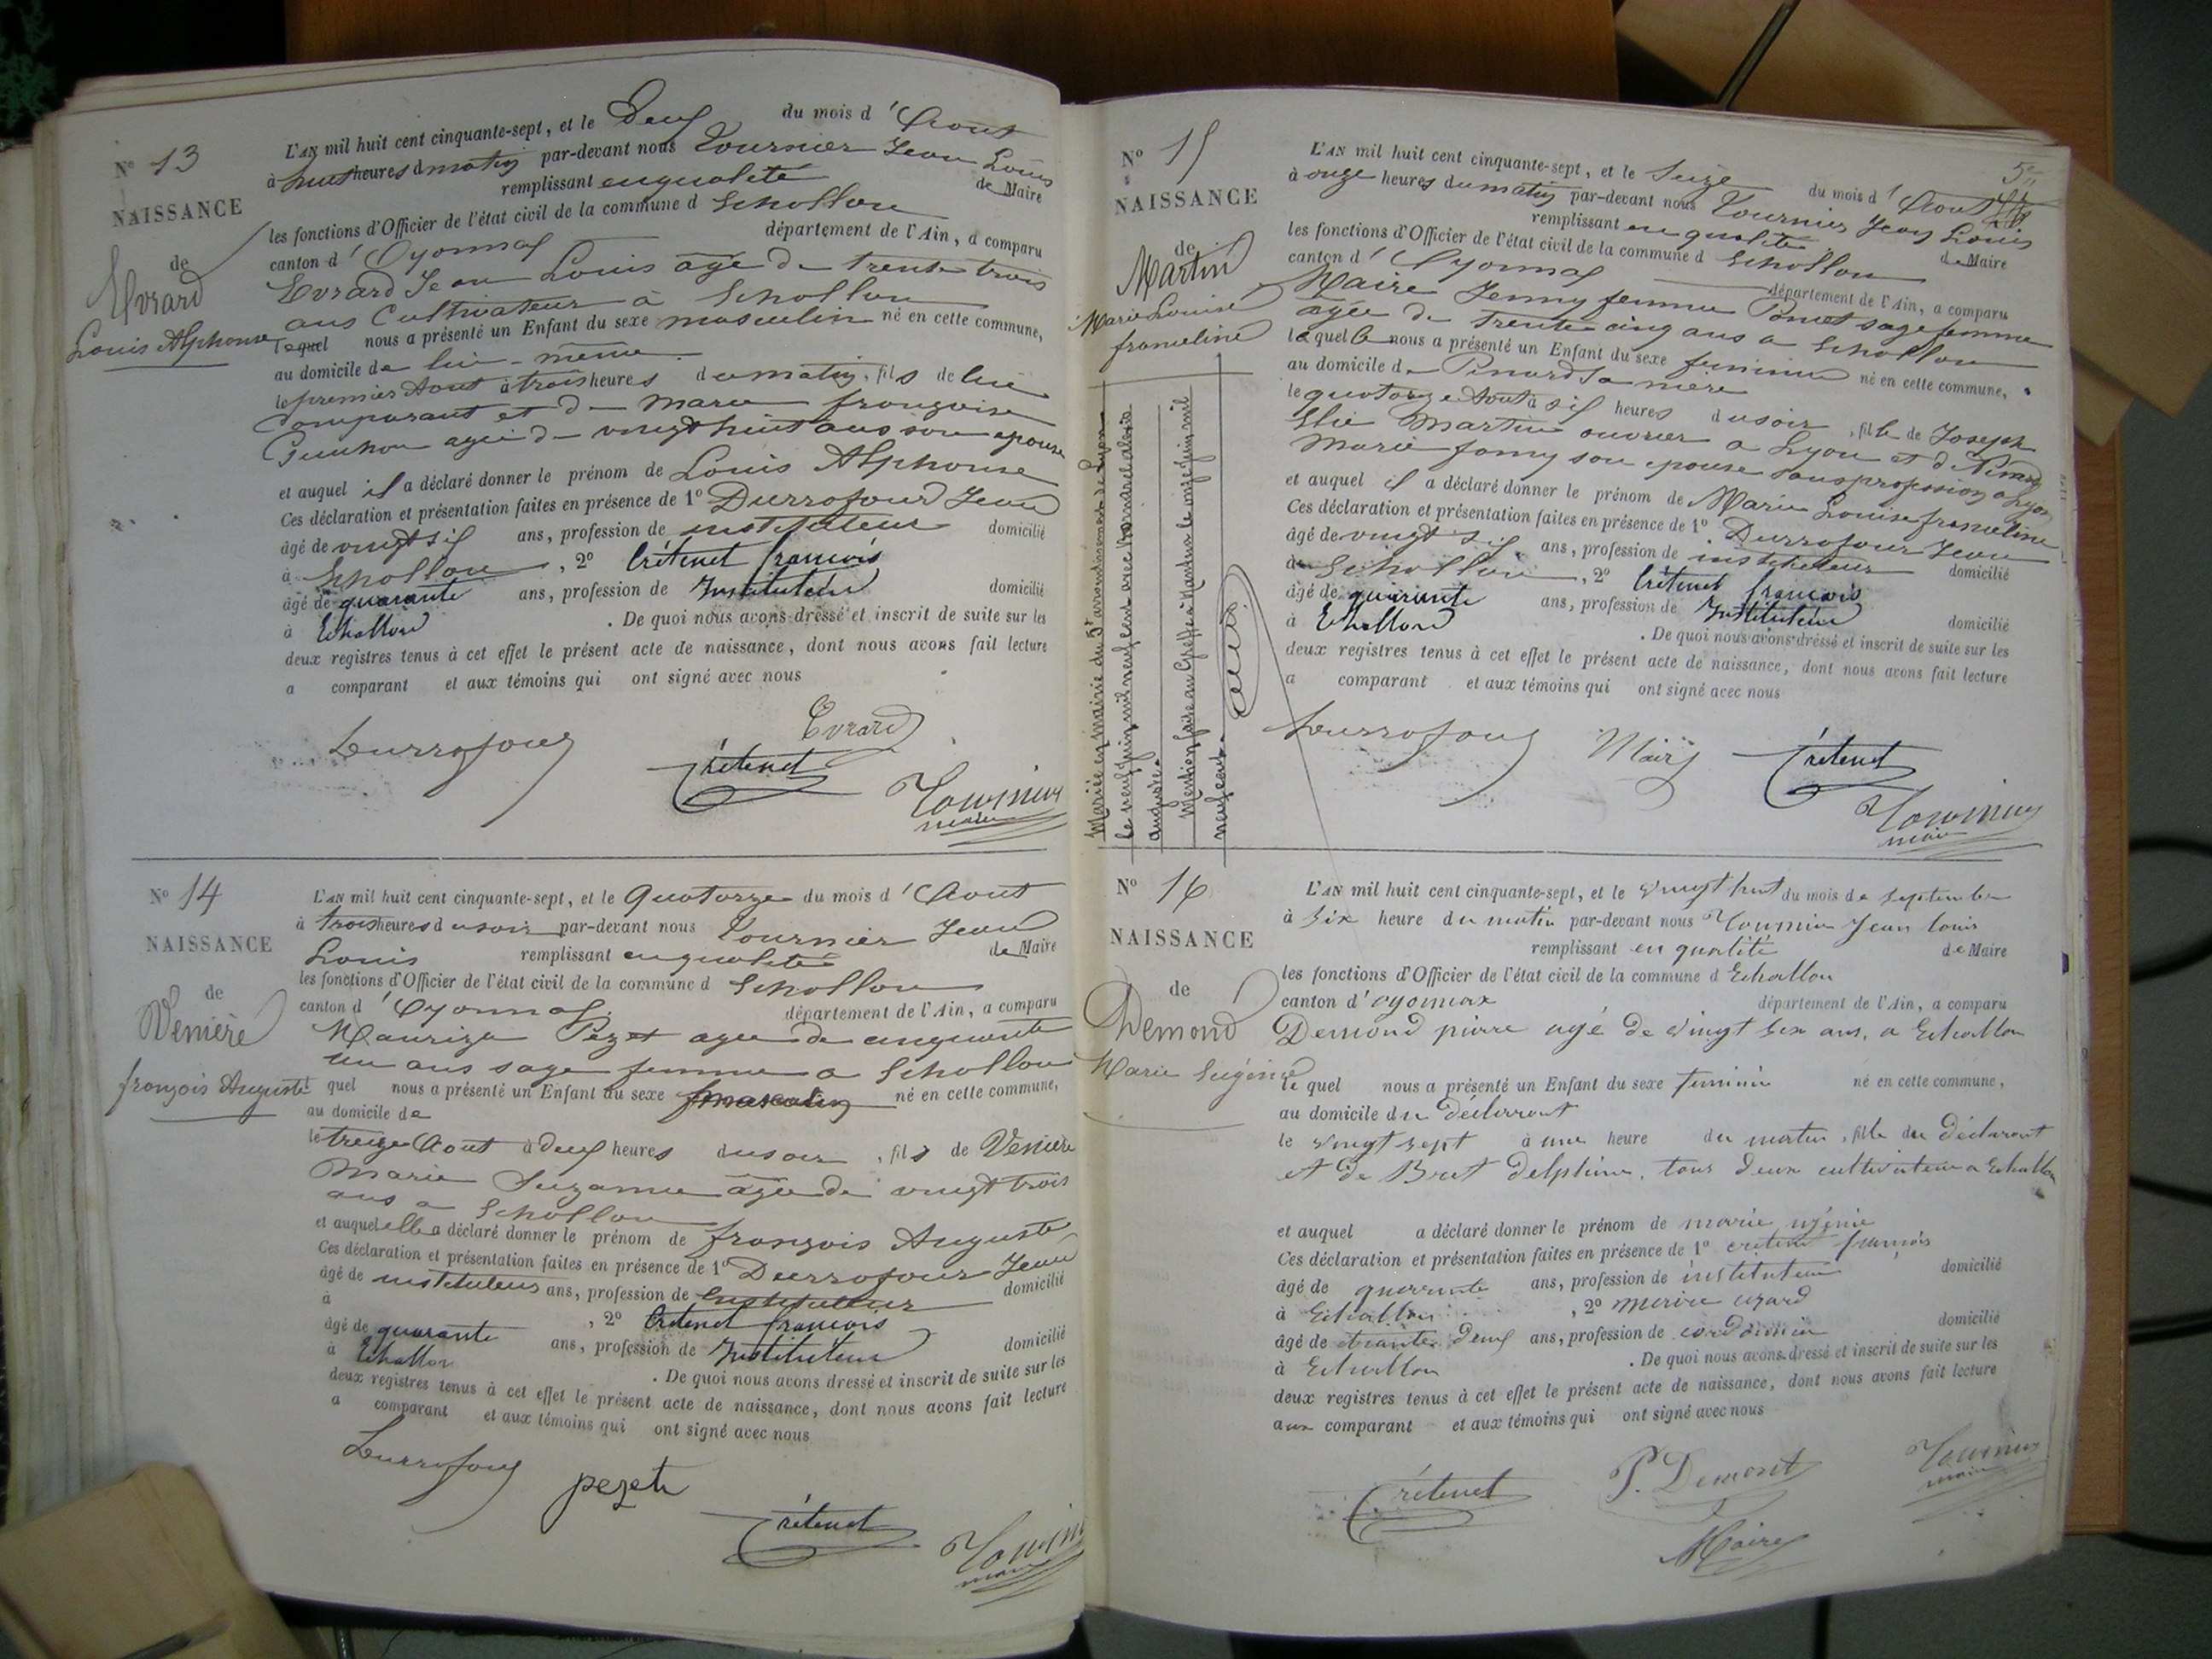 N° 13
NAISSANCE
de
Evrard
Louis Alphonse
L'AN mil huit cent cinquante-sept, et le Deux du mois d'Aout
à huit heures d matin par-devant nous Tournier Jean Louis
remplissant en qualité de Maire
les fonctions d'Officier de l'état civil de la commune d Echallon
canton d'Oyonnax département de l'Ain, a comparu
Evrard Jean Louis agé de trente trois
ans Cultivateur à Echallon
lequel nous a présenté un Enfant du sexe masculin né en cette commune,
au domicile de lui-même
le premier Aout à trois heures du matin, fils de lui
Comparant et de marie françoise
agée de vingt huit ans son epouse
et auquel il a déclaré donner le prénom de Louis Alphonse
Ces déclaration et présentation faites en présence de 1° Durrafour Jean
âgé de vingt six ans, profession de instituteur domicilié
à Echallon, 2° Crétenet françois
âgé de quarante ans, profession de Instituteur domicilié
à Echallon. De quoi nous avons dressé et inscrit de suite sur les
deux registres tenus à cet effet le présent acte de naissance, dont nous avons fait lecture
a comparant et aux témoins qui ont signé avec nous
Durrafour
Evrard
Crétenet
Tournier
maire
N° 14
NAISSANCE
de
Venière
françois Auguste
L'AN mil huit cent cinquante-sept, et le Quatorze du mois d'Aout
à trois heures du soir par-devant nous Tournier Jean
Louis remplissant en qualité de Maire
les fonctions d'Officier de l'état civil de la commune d Echallon
canton d'Oyonnax département de l'Ain, a comparu
Pezet agée de cinquante
un ans sage femme a Echallon
quel nous a présenté un Enfant du sexe masculin né en cette commune,
au domicile de
le treize Aout à deux heures du soir, fils de Venière
Marie Suzanne agée de vingt trois
ans a Echallon
et auquel elle a déclaré donner le prénom de françois Auguste
Ces déclaration et présentation faites en présence de 1° Durrafour Jean
âgé de instituteur ans, profession de instituteur domicilié
à , 2° Crétenet françois
âgé de quarante ans, profession de Instituteur domicilié
à Echallon . De quoi nous avons dressé et inscrit de suite sur les
deux registres tenus à cet effet le présent acte de naissance, dont nous avons fait lecture
a comparant et aux témoins qui ont signé avec nous
Durrafour
pezet
Crétenet
Tournier
maire
N° 15
NAISSANCE
de
Martin
Marie Louise
françeline
Mariée en mairie du 5e arrondissement de Lyon
le neuf juin mil neuf cent avec
Mention faite au Greffe à Nantua le onze juin mil
neuf cent.
L'AN mil huit cent cinquante-sept, et le Seize du mois d'Aout
à onze heures du matin par-devant nous Tournier Jean Louis
remplissant en qualité de Maire
les fonctions d'Officier de l'état civil de la commune d Echallon
canton d'Oyonnax département de l'Ain, a comparu
Maire Jenny femme Poncet sage femme
agée de trente cinq ans a Echallon
laquelle nous a présenté un Enfant du sexe feminin né en cette commune,
au domicile de Pinard sa mère
le quatorze Aout à six heures du soir, fille de Joseph
Elie Martin ouvrier a Lyon et de Pinard
Marie fanny son epouse sans profession a Lyon
et auquel il a déclaré donner le prénom de Marie Louise françeline
Ces déclaration et présentation faites en présence de 1° Durrafour Jean
âgé de vingt six ans, profession de instituteur domicilié
de Echallon, 2° Crétenet françois
âgé de quarante ans, profession de Instituteur domicilié
à Echallon . De quoi nous avons dressé et inscrit de suite sur les
deux registres tenus à cet effet le présent acte de naissance, dont nous avons fait lecture
a comparant et aux témoins qui ont signé avec nous
Durrafour
Crétenet
Tournier
maire
N° 16
NAISSANCE
de
Demond
Marie Eugénie
L'AN mil huit cent cinquante-sept, et le vingt huit du mois de septembre
à six heure du matin par-devant nous Tournier Jean louis
remplissant en qualité de Maire
les fonctions d'Officier de l'état civil de la commune d Echallon
canton d'oyonnax département de l'Ain, a comparu
Demond pierre agé de vingt six ans, a Echallon
le quel nous a présenté un Enfant du sexe feminin né en cette commune,
au domicile du déclarant
le vingt sept à une heure du matin, fille du déclarant
et de Brut delphine, tous deux cultivateur a Echallon
et auquel a déclaré donner le prénom de marie ugénie
Ces déclaration et présentation faites en présence de 1° cretenet françois
âgé de quarrante ans, profession de instituteur domicilié
à Echallon , 2°
âgé de trante deux ans, profession de cordonnier domicilié
à Echallon . De quoi nous avons dressé et inscrit de suite sur les
deux registres tenus à cet effet le présent acte de naissance, dont nous avons fait lecture
aux comparant et aux témoins qui ont signé avec nous
Crétenet
P. Demont
Tournier
maire